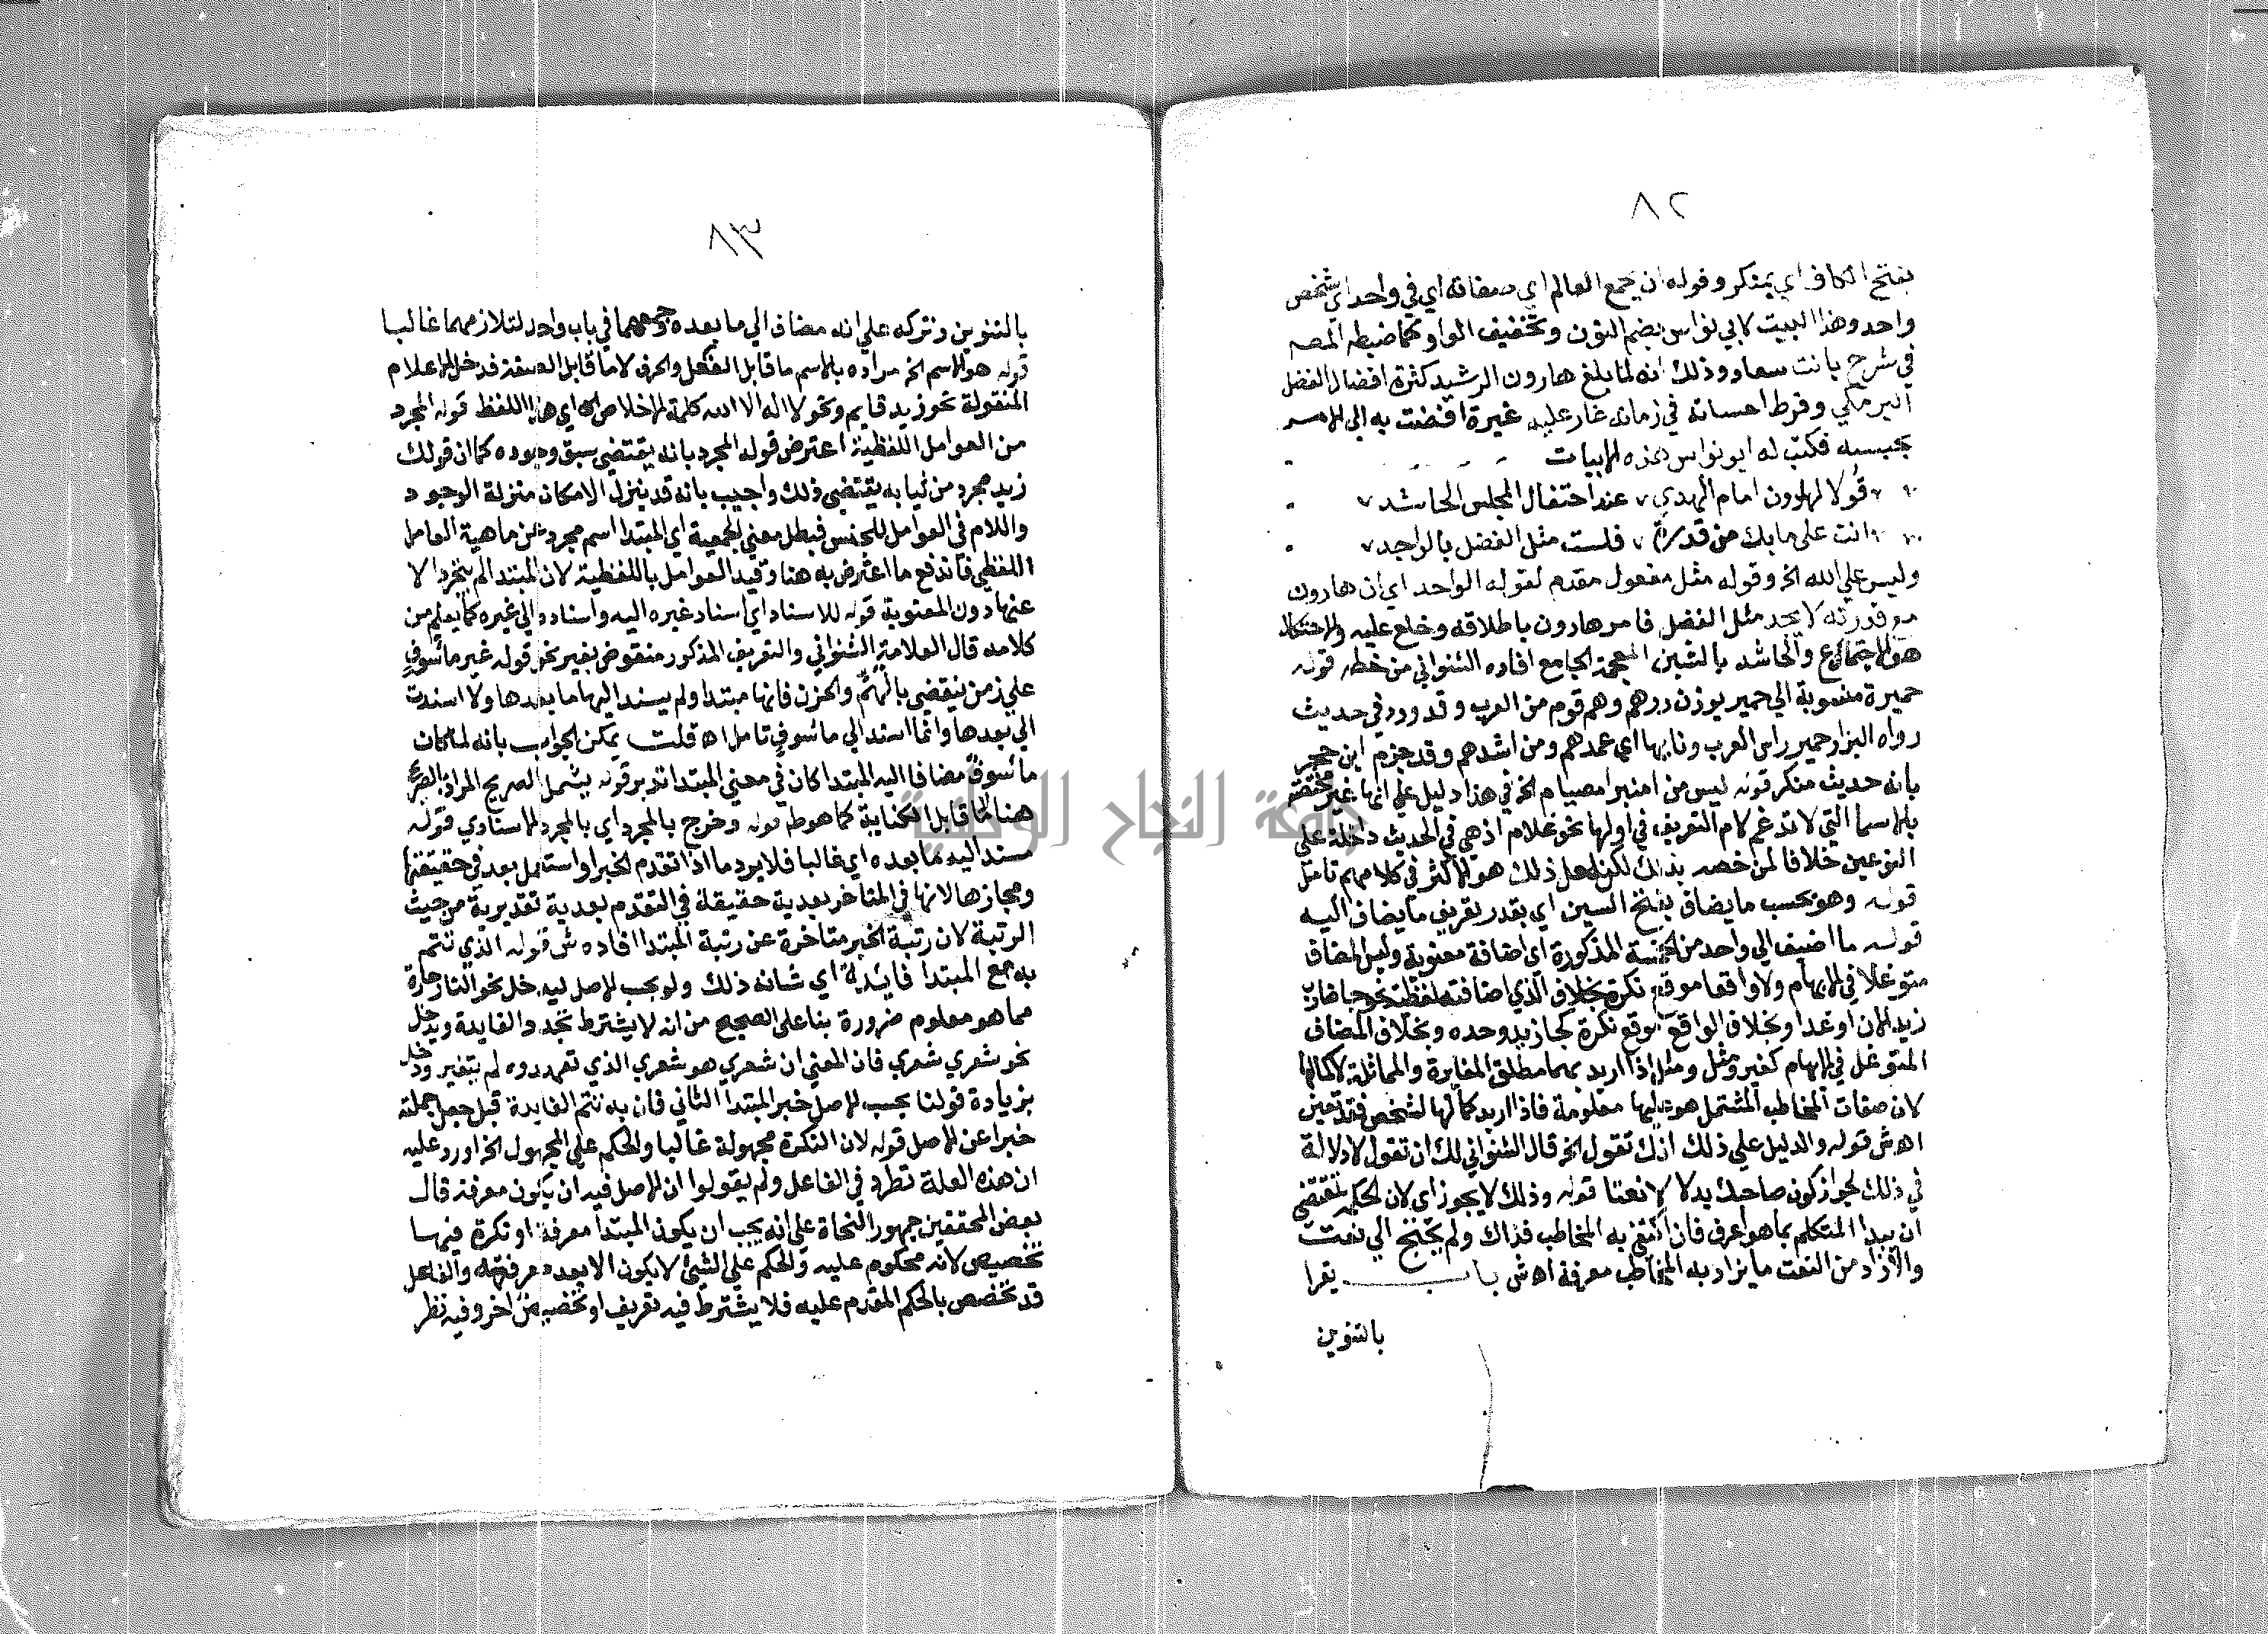 ٨٢
بفتح الكاف اي بمنكر وقوله ان يجمع العالم اي صفاته اي في واحد اي شخص
واحد وهذا البيت لابي نواس بضم النون وتخفيف الواو كما ضبطه المصـ
في شرح بانت سعاد وذلك انه لما بلغ هارون الرشيد كثرة افضال الفضل
البرمكي وفرط احسانه في زمانه غار عليه غيرة افضت به الي الامـر
بحبسه فكتب له ابو نواس هذه الابيات
قولا لهارون امام الهدي عند احتفال المجلس الحاشد
انت على ما بك من قدرة فلست مثل الفضل بالواجد
وليس علي الله الخ وقوله مثل مفعول مقدم لقوله الواجد اي ان هارون
مع قدرته لا يجد مثل الفضل فامر هارون باطلاقه وخلع عليه والاحتفال
هو الاجتماع والحاشد بالشين المعجمة الجامع افاده الشنواني من خطه قوله
حميرة منسوبة الي حمير بوزن درهم وهم قوم من العرب وقد ورد في حديث
رواه البزار حمير راس العرب ونابها اي عمدهم ومن اشدهم وقد جزم ابن حجر
بانه حديث منكر قوله ليس من امبر امصيام الخ في هذا دليل علي انها غير مختصة
بالاسما التي لا تدغم لام التعريف في اولها نحو غلام اذ هي في الحديث داخلة على
النوعين خلافا لمن خصه بذلك لكن لعل ذلك هو الاكثر في كلامهم تامل
قوله وهو بحسب ما يضاف بفتح السين اي بقدر تعريف ما يضاف اليه
قوله ما اضيف الي واحد من الخمسة المذكورة اي اضافة معنوية وليس المضاف
متوغلا في الابهام ولا واقعا موقع نكرة بخلاف الذي اضافته لفظية نحو جا ضارب
زيد الان او غدا وبخلاف الواقع موقع نكرة كجا زيد وحده وبخلاف المضاف
المتوغل في الابهام كغير ومثل ومثل اذا اريد بهما مطلق المغايرة والمماثلة لا كمالها
لان صفات المخاطب المشتمل هو عليها معلومة فاذا اريد كمالها لشخص فقد تعين
اه ش قوله والدليل علي ذلك انك تقول الخ قال الشنواني لك ان تقول لا دلالة
في ذلك لجواز كون صاحبك بدلا لا نعتا قوله وذلك لا يجوز اي لان الحكمة تقتضي
ان يبدا المتكلم بما هو اعرف فان اكتفي به المخاطب فذاك ولم يحتج الي نعت
والا زاد من النعت ما يزداد به المخاطب معرفة اه ش باب يقرا
بالتنوين
٨٣
بالتنوين وتركه علي انه مضاف الي ما بعده وجمعهما في باب واحد لتلازمهما غالبا
قوله هو الاسم الخ مراده بالاسم ما قابل الفعل والحرف لا ما قابل الصفة فدخل الاعلام
المنقولة نحو زيد قايم ونحو لا اله الا الله كلمة الاخلاص اي هذا اللفظ قوله المجرد
من العوامل اللفظية اعترض قوله المجرد بانه يقتضي سبق وجوده كما ان قولك
زيد مجرد من ثيابه يقتضي ذلك واجيب بانه قد ينزل الامكان منزلة الوجود
واللام في العوامل للجنس فبطل معني الجمعية اي المبتدا اسم مجرد عن ماهية العامل
اللفظي فاندفع ما اعترض به هنا وقيد العوامل باللفظية لان المبتدا لم يتجرد الا
عنها دون المعنوية قوله للاسناد اي اسناد غيره اليه واسناده الي غيره كما يعلم من
كلامه قال العلامة الشنواني والتعريف المذكور منقوض بغير نحو قوله غير ماسوف
علي زمن ينقضي بالهم والحزن فانها مبتدا ولم يسند اليها ما بعدها ولا اسندت
الي بعدها وانما اسند الي ماسوف تامل اه قلت يمكن الجواب بانه لما كان
ماسوف مضافا اليه المبتدا كان في معني المبتدا تدبر قوله يشمل الصريح المراد بالصريح
هنا ما قابل الكناية كما هو ط قوله وخرج بالمجرد اي بالمجرد للاسناد ي قوله
مسند اليه ما بعده اي غالبا فلا يرد ما اذا تقدم الخبر او استعمل بعد في حقيقتها
ومجازها لانها في المتاخر بعدية حقيقة في التقدم بعدية تقديرية من حيث
الرتبة لان رتبة الخبر متاخرة عن رتبة المبتدا افاده ش قوله الذي تتم
به مع المبتدا فايدة اي شانه ذلك ولو بحسب الاصل ليدخل نحو النار حارة
مما هو معلوم ضرورة بنا على الصحيح من انه لا يشترط تجدد الفايدة ويدخل
نحو شعري شعري فان المعني ان شعري هو شعري الذي تعهدوه لم يتغير ودخل
بزيادة قولنا بحسب الاصل خبر المبتدا الثاني فان به تتم الفايدة قبل جعل جملته
خبرا عن الاصل قوله لان النكرة مجهولة غالبا والحكم علي المجهول الخ اورد عليه
ان هذه العلة تطرد في الفاعل ولم يقولوا ان الاصل فيه ان يكون معرفة قال
بعض المحققين جمهور النحاة على انه يجب ان يكون المبتدا معرفة او نكرة فيها
تخصيص لانه محكوم عليه والحكم علي الشيئ لا يكون الا بعد معرفته والفاعل
قد تخصص بالحكم المقدم عليه فلا يشترط فيه تعريف او تخصيص اخر وفيه نظر
جامعة النجاح الوطنية